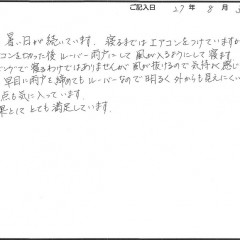 ご記入日 27年8月
暑い日が続いています。寝るまではエアコンをつけていますが
コンを切った後 ルーバー雨戸にして 風が入るようにして寝ます。
で寝るわけではありませんが 風が抜けるので気持ち良く感じ
早目に雨戸を締めても ルーバーなので明るく 外からも見えにくい
点も気に入っています。
とても満足しています。